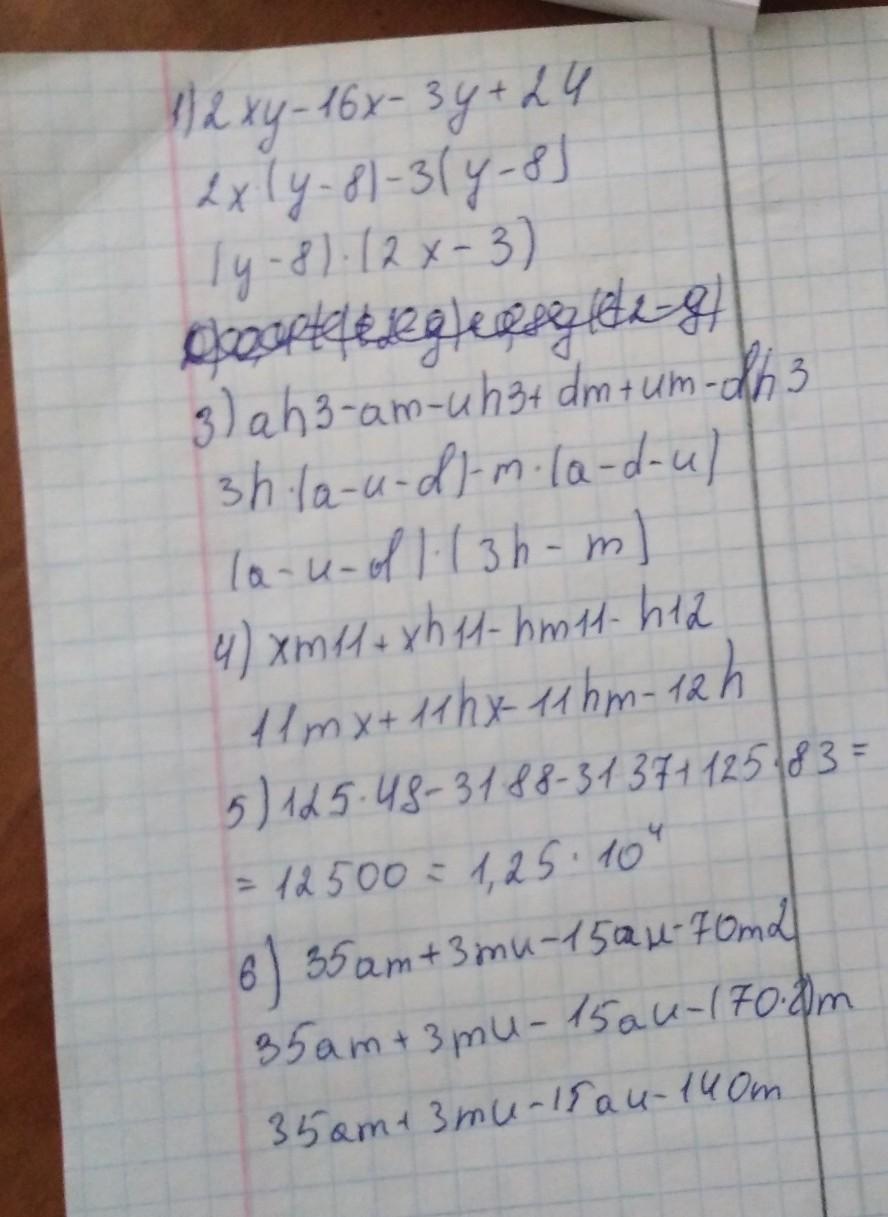 1) 2xy-16x-3y+24
2x·(y-8)-3(y-8)
(y-8)·(2x-3)
3) ah3-am-uh3+dm+um-dh3
3h·(a-u-d)-m·(a-d-u)
(a-u-d)·(3h-m)
4) xm11+xh11-hm11-h12
11mx+11hx-11hm-12h
5) 125·48-31·88-31·37+125·83=
=12500=1,25·10⁴
6) 35am+3mu-15au-70m2
35am+3mu-15au-(70·2)m
35am+3mu-15au-140m